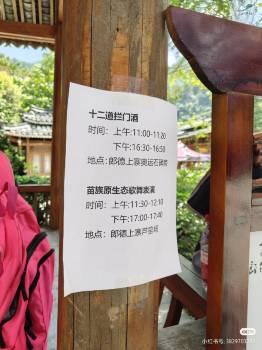 十二道拦门酒
时间：上午:11:00-11:20
下午:16:30-16:50
地点：郎德上寨奥运石碑旁
苗族原生态歌舞表演
时间：上午:11:30-12:10
下午:17:00-17:40
地点：郎德上寨芦笙场
小红书号: